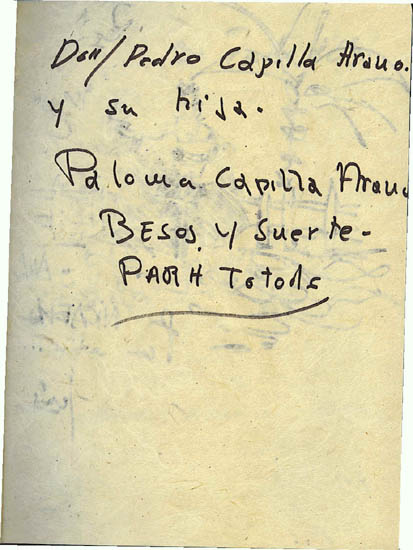 Don/Pedro Capilla Arano.
y su hija.
Paloma Capilla Arano
BESOS, y Suerte-
PARA Totods